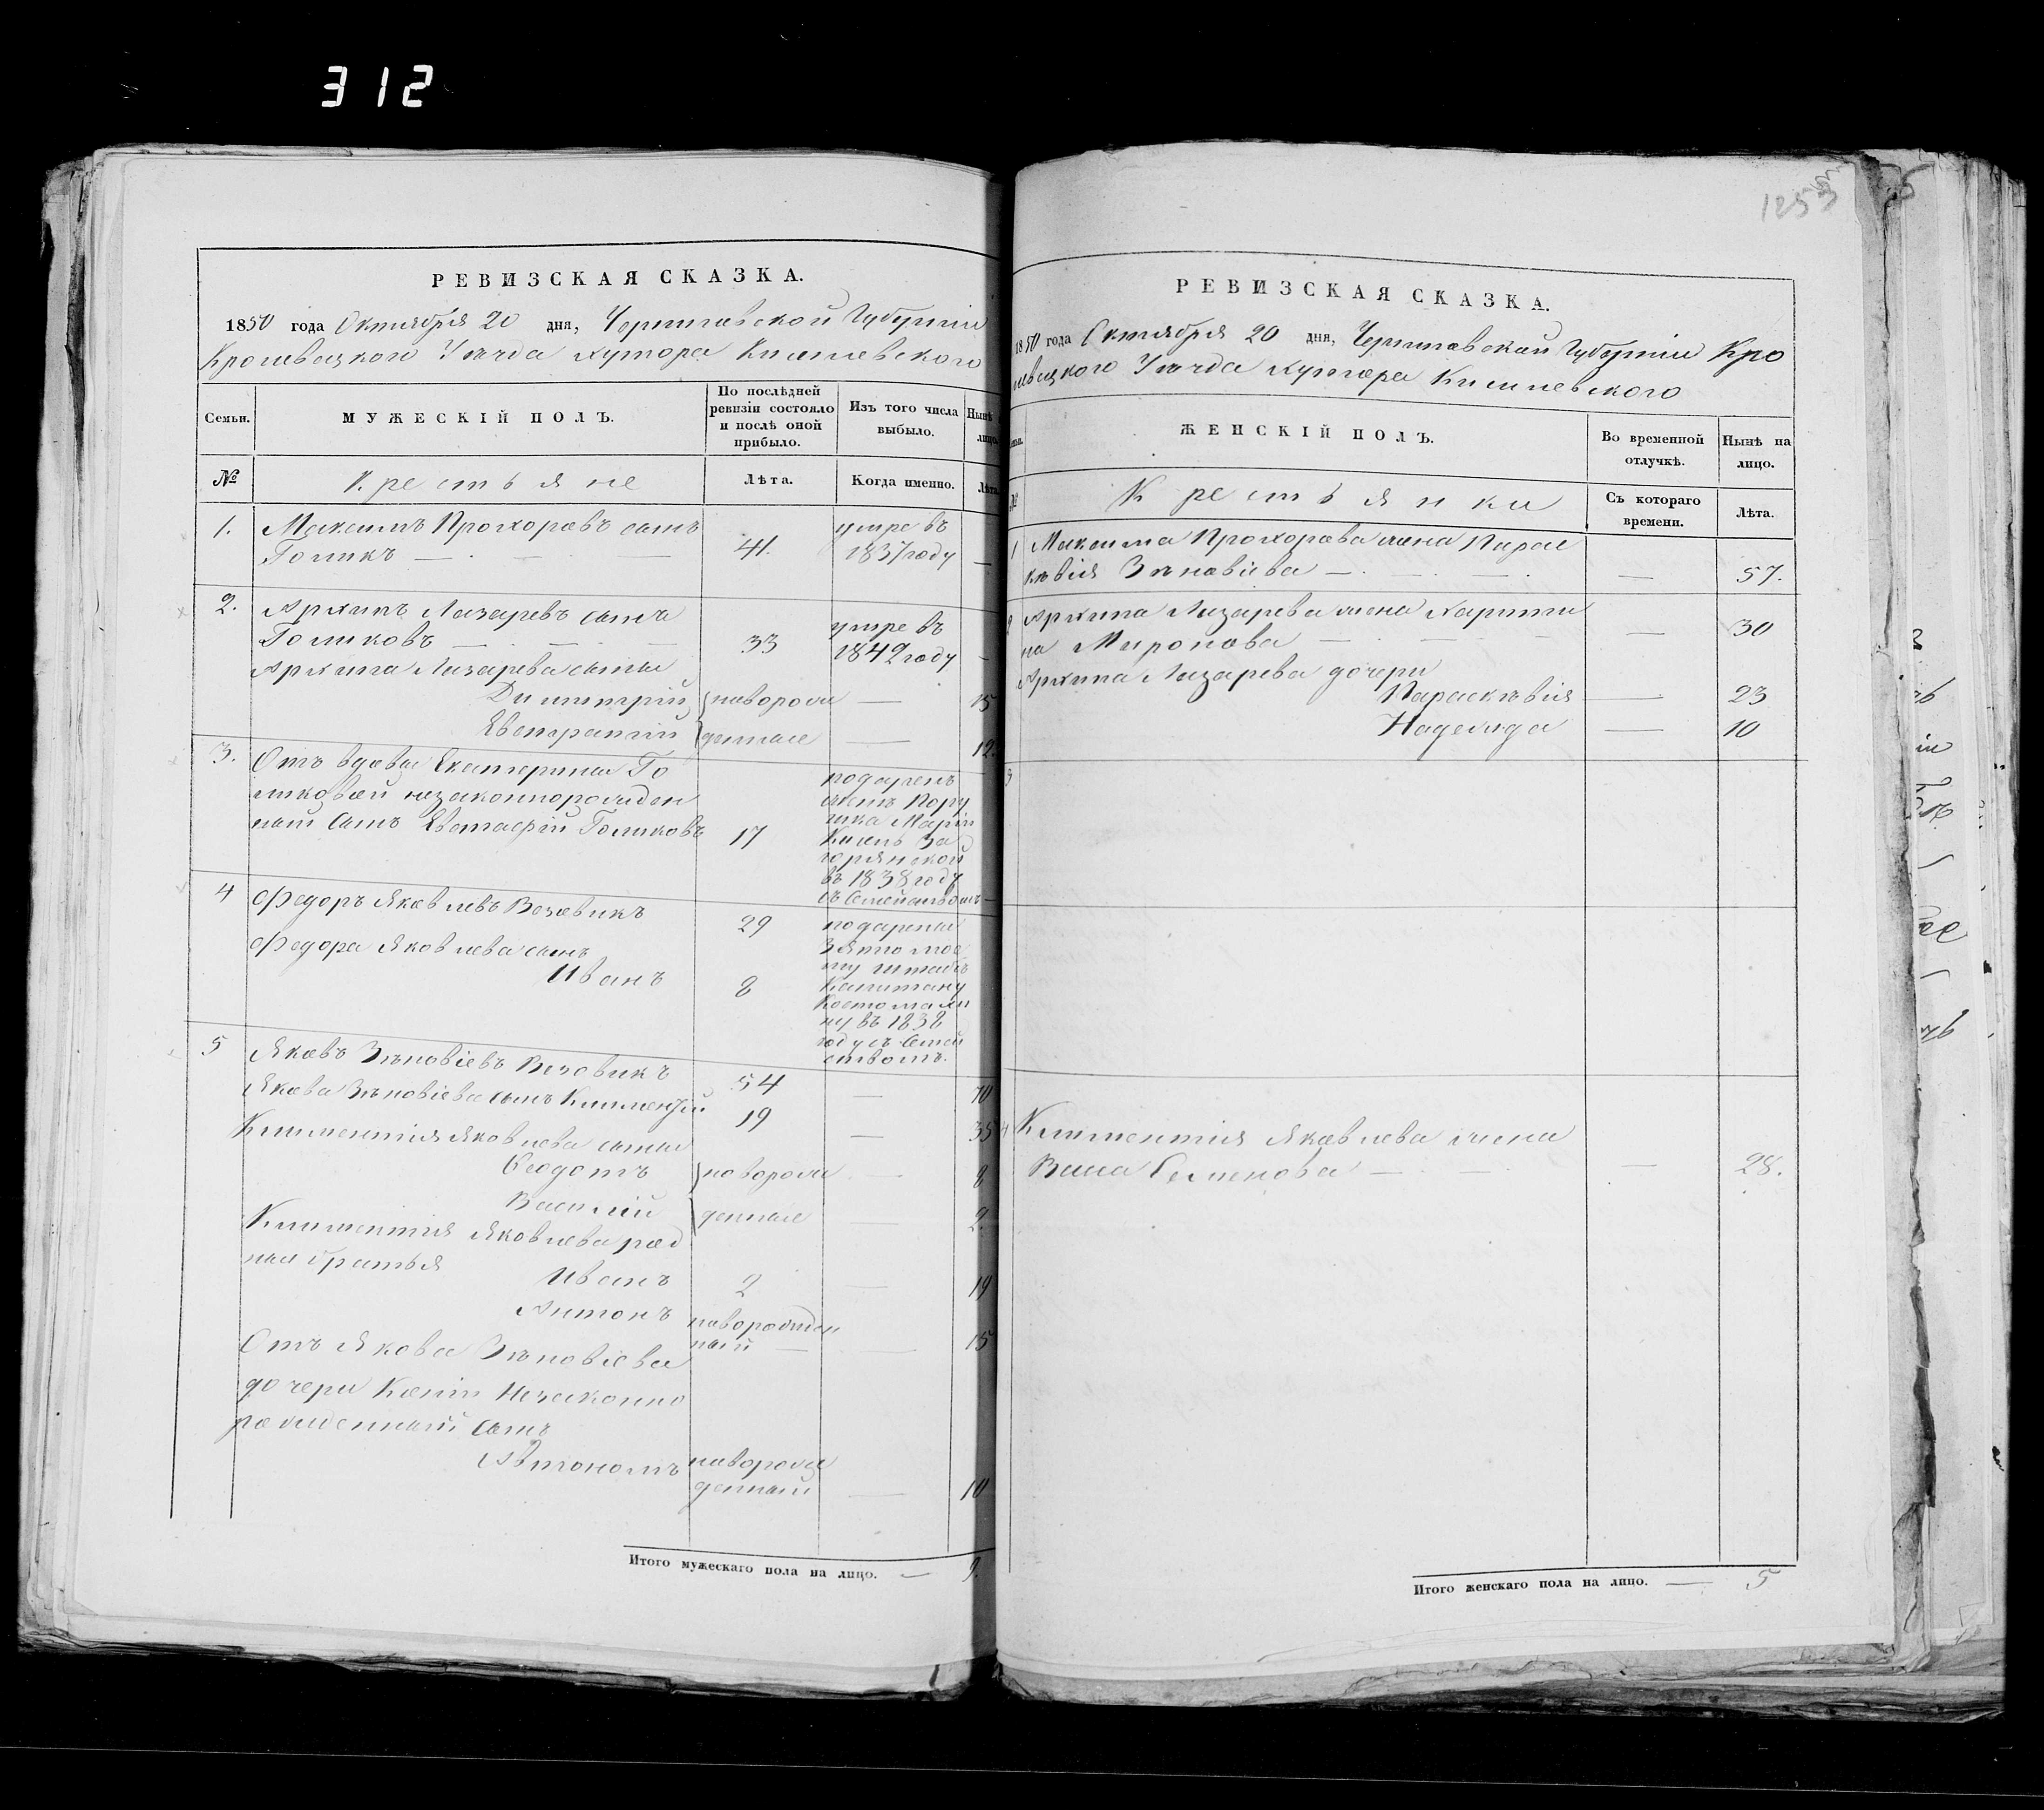 312
РЕВИЗСКАЯ СКАЗКА.
1850 года Октября 20 дня, Черниговской Губерніи
Кролевецкого Уѣзда хутора
МУЖЕСКІЙ ПОЛЪ.
Семьи.
По послѣдней
ревизіи состояло
и послѣ оной
прибыло.
Изъ того числа
выбыло.
Нынѣ
лицо.
№
Крестьяне
Лѣта.
Когда именно.
Лѣта
1.
Максимъ Прохоровъ сынъ
Голикъ
41.
умре въ
1837 году
2.
Архипъ Лазаревъ сынъ
Голиковъ
33
умре въ
1842 году
Архипа Лазарева сыны
Димитрій
новорож
15
Евстратій
денные
12.
3.
Отъ вдовы Екатерины Го
ликовой незаконнорожден
ный сынъ Евстафій Голиковъ
17
подаренъ
женѣ Пору
чика Маріи
въ 1838 году
съ Семействомъ
4
Федоръ Яковлевъ
29
Федора Яковлева сынъ
Иванъ
8
подарены
Зятю мое
му штабсъ
Капитану
ну въ 1838
году съ Семей
ствомъ.
5
Яковъ Зѣновіевъ
54
70
Якова Зѣновіева сынъ Климентій
19
35
Климентія Яковлева сыны
Феодотъ
новорож
8
Василій
денные
2.
Климентія Яковлева род
ные братья
Иванъ
2
19
Антонъ
новорожден
ный
15
Отъ Якова Зѣновіева
дочери Ксеніи Незаконно
рожденный сынъ
Автономъ
новорож
денный
10
Итого мужескаго пола на лицо. 9.
1253
РЕВИЗСКАЯ СКАЗКА.
1850 года Октября 20 дня, Черниговской Губерніи Кро
левецкого Уѣзда хутора
ЖЕНСКІЙ ПОЛЪ.
Во временной
отлучкѣ.
Нынѣ на
лицо.
№
Крестьянки
Съ котораго
времени.
Лѣта.
1
Максима Прохорова жена Парас
кѣвія Зѣновіева
57.
2
Архипа Лазарева жена Харити
на Миронова
30
Архипа Лазарева дочери
Параскѣвія
23
Надежда
10
3
4
Климентія Яковлева жена
Семенова
28.
Итого женскаго пола на лицо. 5